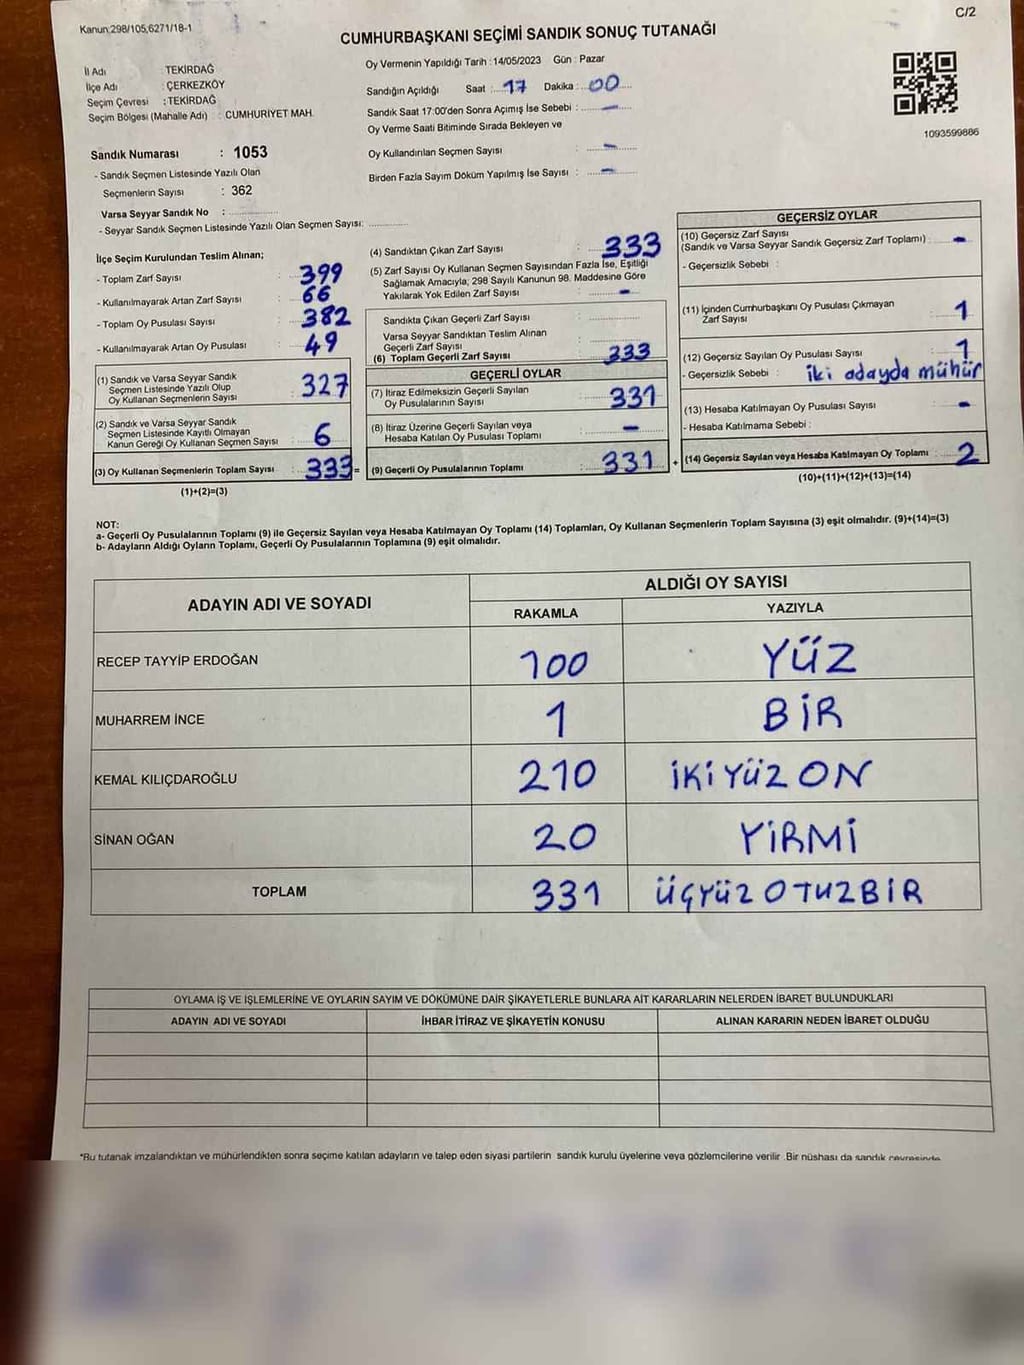 Kanun:298/105,6271/18-1
C/2
CUMHURBAŞKANI SEÇİMİ SANDIK SONUÇ TUTANAĞI
İl Adı : TEKİRDAĞ
İlçe Adı : ÇERKEZKÖY
Seçim Çevresi : TEKİRDAĞ
Seçim Bölgesi (Mahalle Adı) : CUMHURİYET MAH.
Sandık Numarası : 1053
- Sandık Seçmen Listesinde Yazılı Olan
Seçmenlerin Sayısı : 362
Varsa Seyyar Sandık No :
- Seyyar Sandık Seçmen Listesinde Yazılı Olan Seçmen Sayısı:
Oy Vermenin Yapıldığı Tarih : 14/05/2023 Gün : Pazar
Sandığın Açıldığı Saat : 17 Dakika : 00
Sandık Saat 17:00'den Sonra Açımış İse Sebebi : -
Oy Verme Saati Bitiminde Sırada Bekleyen ve
Oy Kullandırılan Seçmen Sayısı : -
Birden Fazla Sayım Döküm Yapılmış İse Sayısı : -
1093599886
İlçe Seçim Kurulundan Teslim Alınan;
- Toplam Zarf Sayısı : 399
- Kullanılmayarak Artan Zarf Sayısı : 66
- Toplam Oy Pusulası Sayısı : 382
- Kullanılmayarak Artan Oy Pusulası : 49
(1) Sandık ve Varsa Seyyar Sandık
Seçmen Listesinde Yazılı Olup
Oy Kullanan Seçmenlerin Sayısı : 327
(2) Sandık ve Varsa Seyyar Sandık
Seçmen Listesinde Kayıtlı Olmayan
Kanun Gereği Oy Kullanan Seçmen Sayısı : 6
(3) Oy Kullanan Seçmenlerin Toplam Sayısı : 333 =
(1)+(2)=(3)
(4) Sandıktan Çıkan Zarf Sayısı : 333
(5) Zarf Sayısı Oy Kullanan Seçmen Sayısından Fazla İse, Eşitliği
Sağlamak Amacıyla, 298 Sayılı Kanunun 98. Maddesine Göre
Yakılarak Yok Edilen Zarf Sayısı : -
Sandıkta Çıkan Geçerli Zarf Sayısı :
Varsa Seyyar Sandıktan Teslim Alınan
Geçerli Zarf Sayısı :
(6) Toplam Geçerli Zarf Sayısı : 333
GEÇERLİ OYLAR
(7) İtiraz Edilmeksizin Geçerli Sayılan
Oy Pusulalarının Sayısı : 331
(8) İtiraz Üzerine Geçerli Sayılan veya
Hesaba Katılan Oy Pusulası Toplamı : -
(9) Geçerli Oy Pusulalarının Toplamı : 331 +
GEÇERSİZ OYLAR
(10) Geçersiz Zarf Sayısı
(Sandık ve Varsa Seyyar Sandık Geçersiz Zarf Toplamı) : -
- Geçersizlik Sebebi :
(11) İçinden Cumhurbaşkanı Oy Pusulası Çıkmayan
Zarf Sayısı : 1
(12) Geçersiz Sayılan Oy Pusulası Sayısı : 1
- Geçersizlik Sebebi : iki adayda mühür
(13) Hesaba Katılmayan Oy Pusulası Sayısı : -
- Hesaba Katılmama Sebebi :
(14) Geçersiz Sayılan veya Hesaba Katılmayan Oy Toplamı : 2
(10)+(11)+(12)+(13)=(14)
NOT:
a- Geçerli Oy Pusulalarının Toplamı (9) ile Geçersiz Sayılan veya Hesaba Katılmayan Oy Toplamı (14) Toplamları, Oy Kullanan Seçmenlerin Toplam Sayısına (3) eşit olmalıdır. (9)+(14)=(3)
b- Adayların Aldığı Oyların Toplamı, Geçerli Oy Pusulalarının Toplamına (9) eşit olmalıdır.
ADAYIN ADI VE SOYADI ALDIĞI OY SAYISI
RAKAMLA YAZIYLA
RECEP TAYYİP ERDOĞAN 100 YÜZ
MUHARREM İNCE 1 BİR
KEMAL KILIÇDAROĞLU 210 İKİYÜZON
SİNAN OĞAN 20 YİRMİ
TOPLAM 331 ÜÇYÜZOTUZBİR
OYLAMA İŞ VE İŞLEMLERİNE VE OYLARIN SAYIM VE DÖKÜMÜNE DAİR ŞİKAYETLERLE BUNLARA AİT KARARLARIN NELERDEN İBARET BULUNDUKLARI
ADAYIN ADI VE SOYADI İHBAR İTİRAZ VE ŞİKAYETİN KONUSU ALINAN KARARIN NEDEN İBARET OLDUĞU
*Bu tutanak imzalandıktan ve mühürlendikten sonra seçime katılan adayların ve talep eden siyasi partilerin sandık kurulu üyelerine veya gözlemcilerine verilir .Bir nüshası da sandık çevresinde